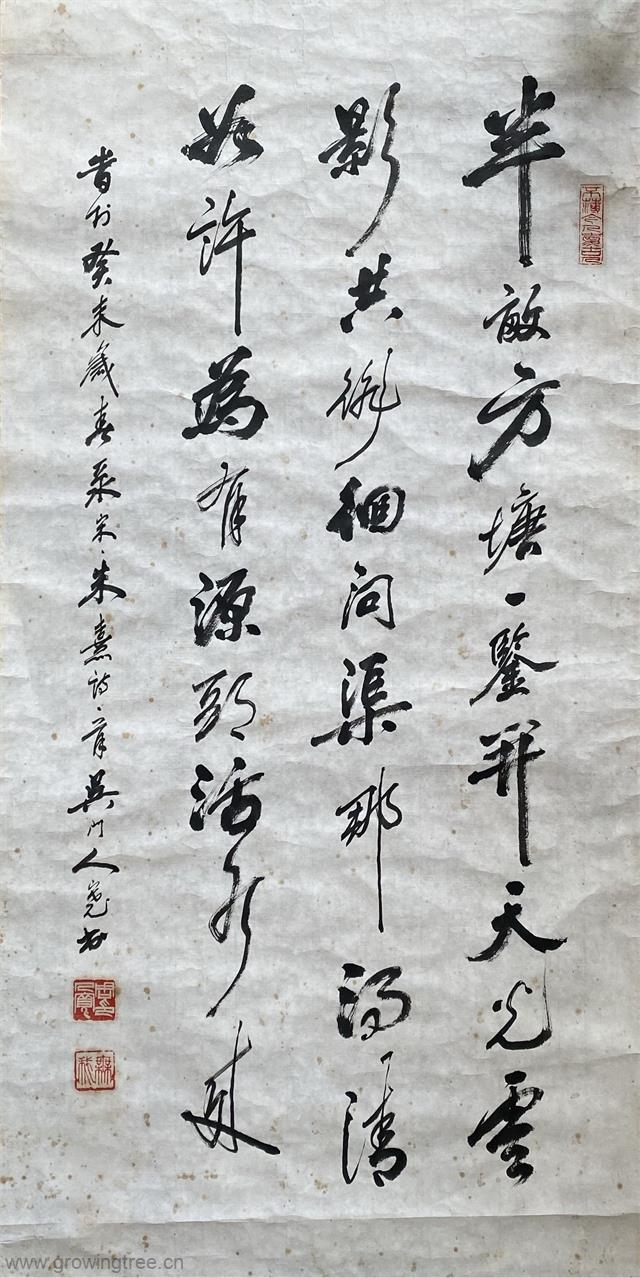 半畝方塘一鑒開天光雲
影共徘徊問渠那得清
如許為有源頭活水來
旹於癸未歲春录宋朱熹詩一首吳門人書
www.growingtree.cn